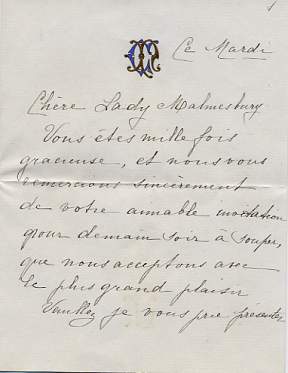 Ce Mardi
Chère Lady Malmesbury
Vous êtes mille fois
gracieuse, et nous vous
remercions sincèrement
de votre aimable invitation
pour demain soir à souper,
que nous acceptons avec
le plus grand plaisir
Veuillez je vous prie présenter